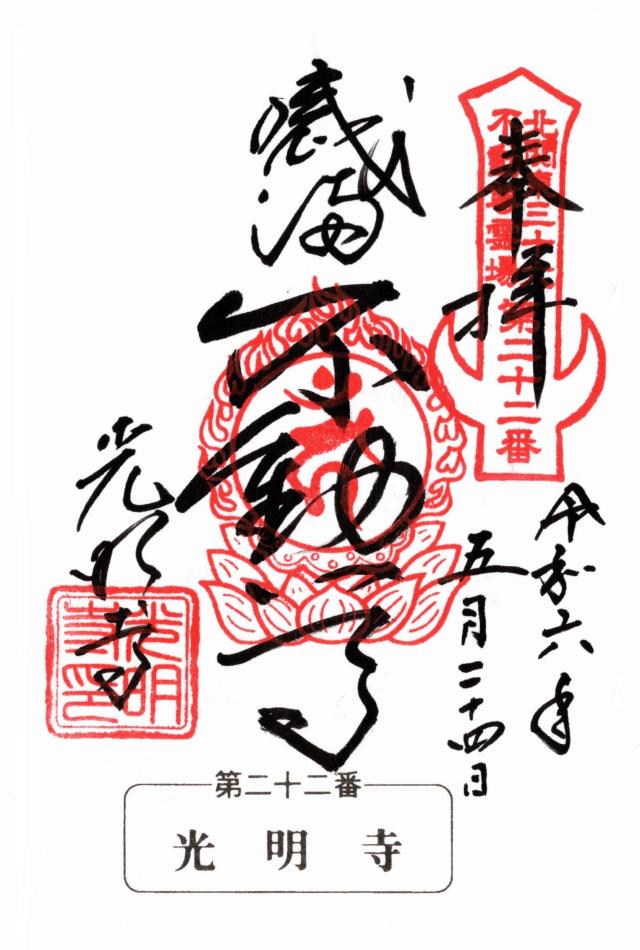 奉拝
北関東三十六
不動尊霊場
第二十二番
令和六年
五月二十四日
不動尊
光明寺
光明
寺印
第二十二番
光明寺